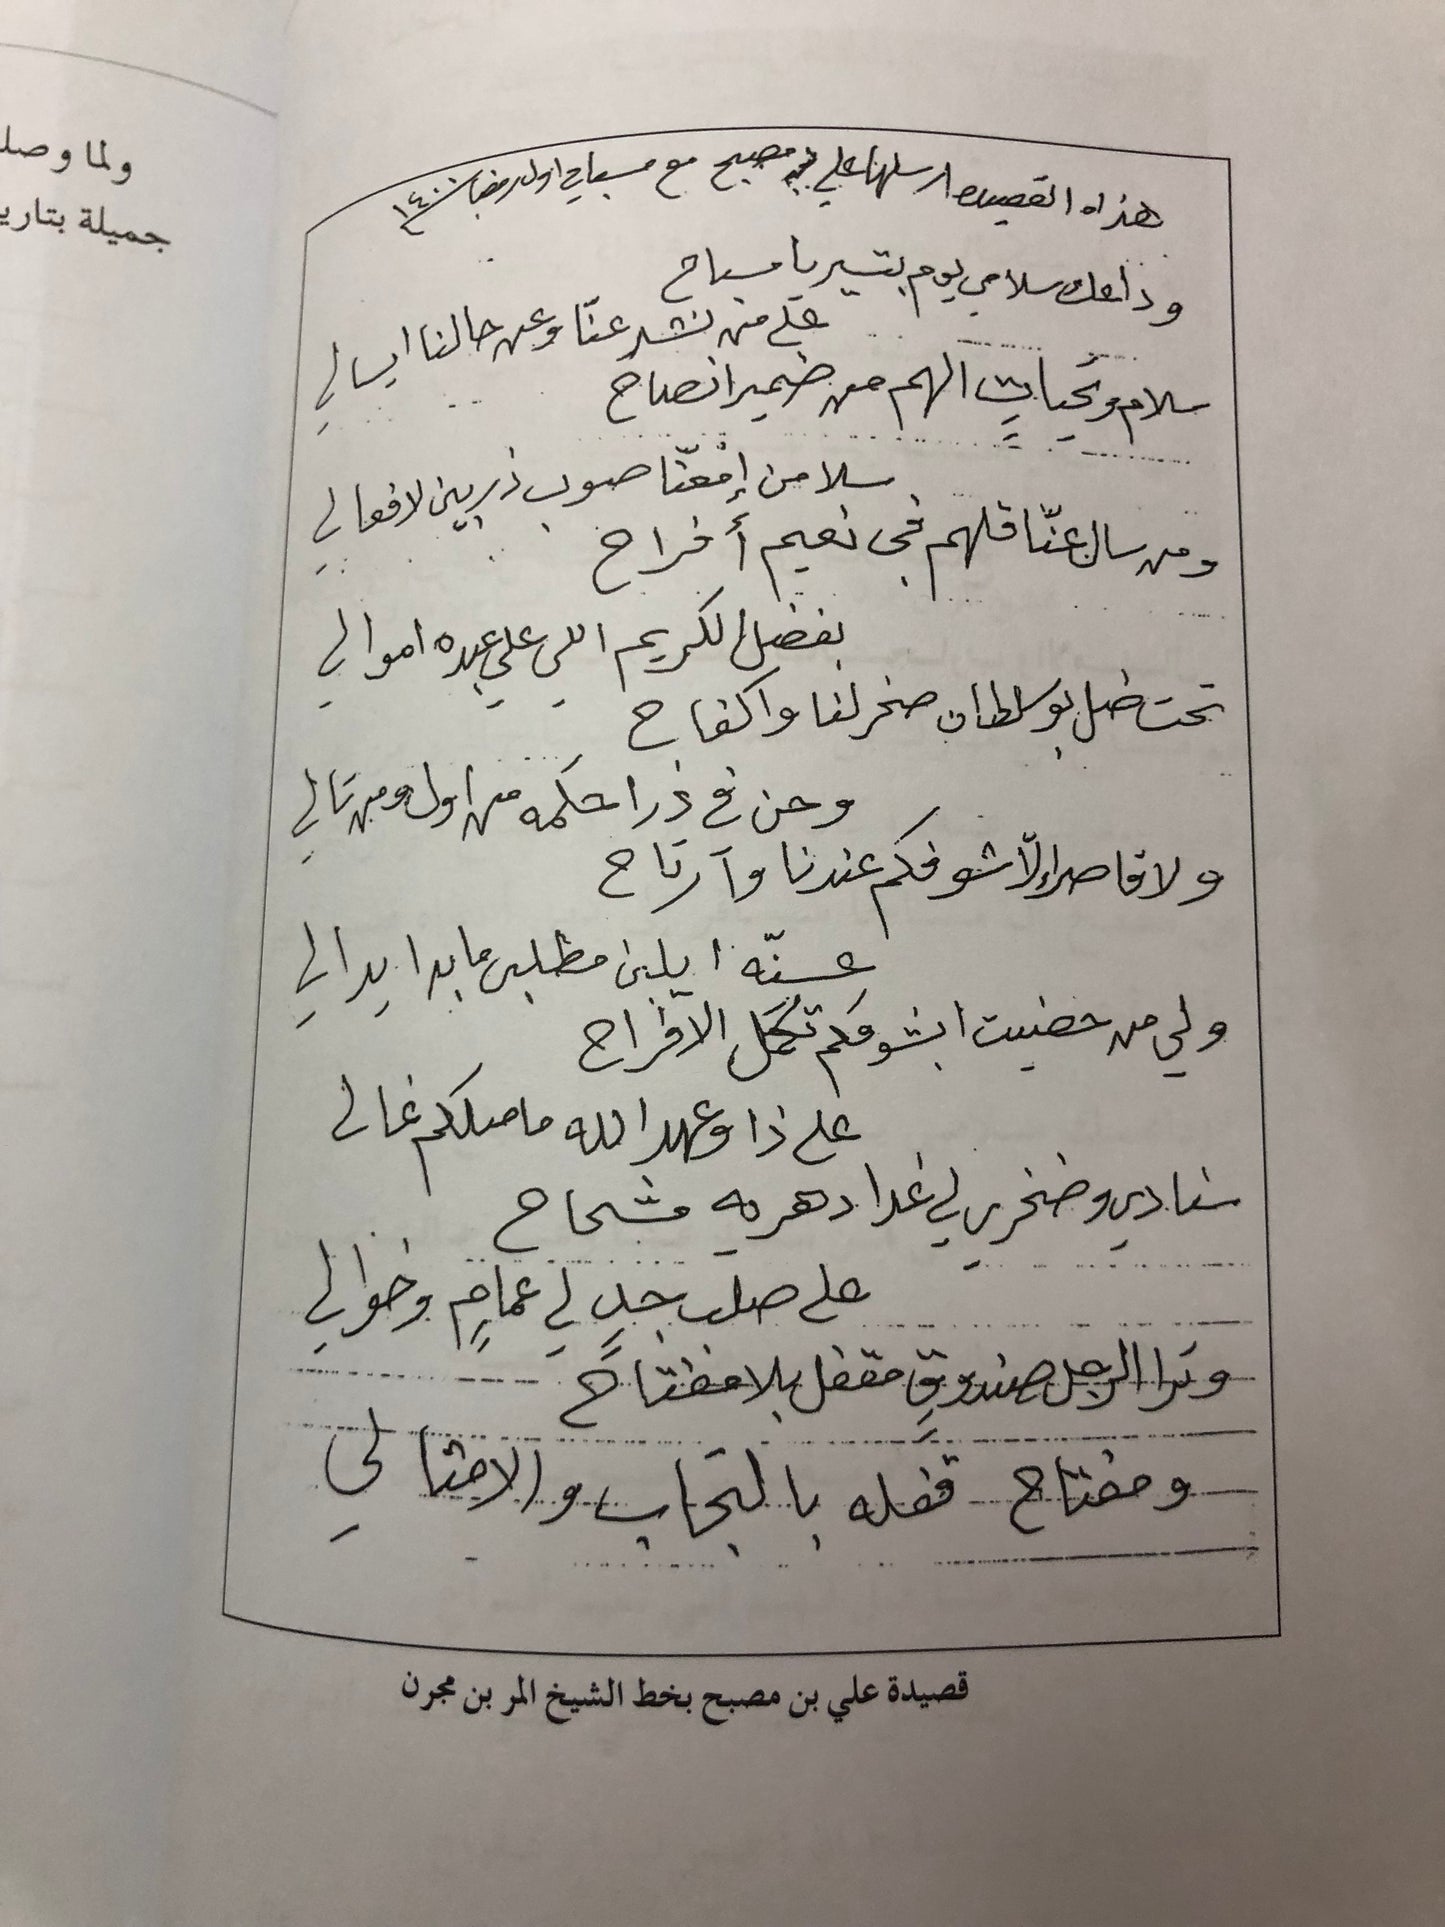 ولما وصل
جميلة بتاري
هذاه القصيده ارسلها علي بن مصبح مع مسباح اول رمضان ١٤٠٠
وداعك سلامي يوم بتسير يا مسباح
على من نشد عنّا وعن حالنا ايسالي
سلام وتحياتٍ الهم من ضمير انصاح
سلا من إمْعنّا صوب ذربين لافعالي
ومن سال عنّا قلهم في نعيم أفراح
بفضل الكريم اللي على عبده اموالي
تحت ضل بوسلطان صخر لنا واكفاح
وحن في ذرا حكمه من اول ومن تالي
ولا قاصر إلّا شوفكم عندنا وآرتاح
عسنّه ايلبن مطلبي ما بدا يدالي
ولي من حضيت ابشوفكم تكْمَل الافراح
على ذا وعهد الله ما مثلكم غالي
سنادي وضخري لي غدا دهريه مشحاح
على صلب جدٍ لي عمامٍ وخوالي
وترا الرجل صندوقٍ مقفل بلا مفتاح
ومفتاح قفله بالتجاب والامثالي
قصيدة علي بن مصبح بخط الشيخ المر بن مجرن